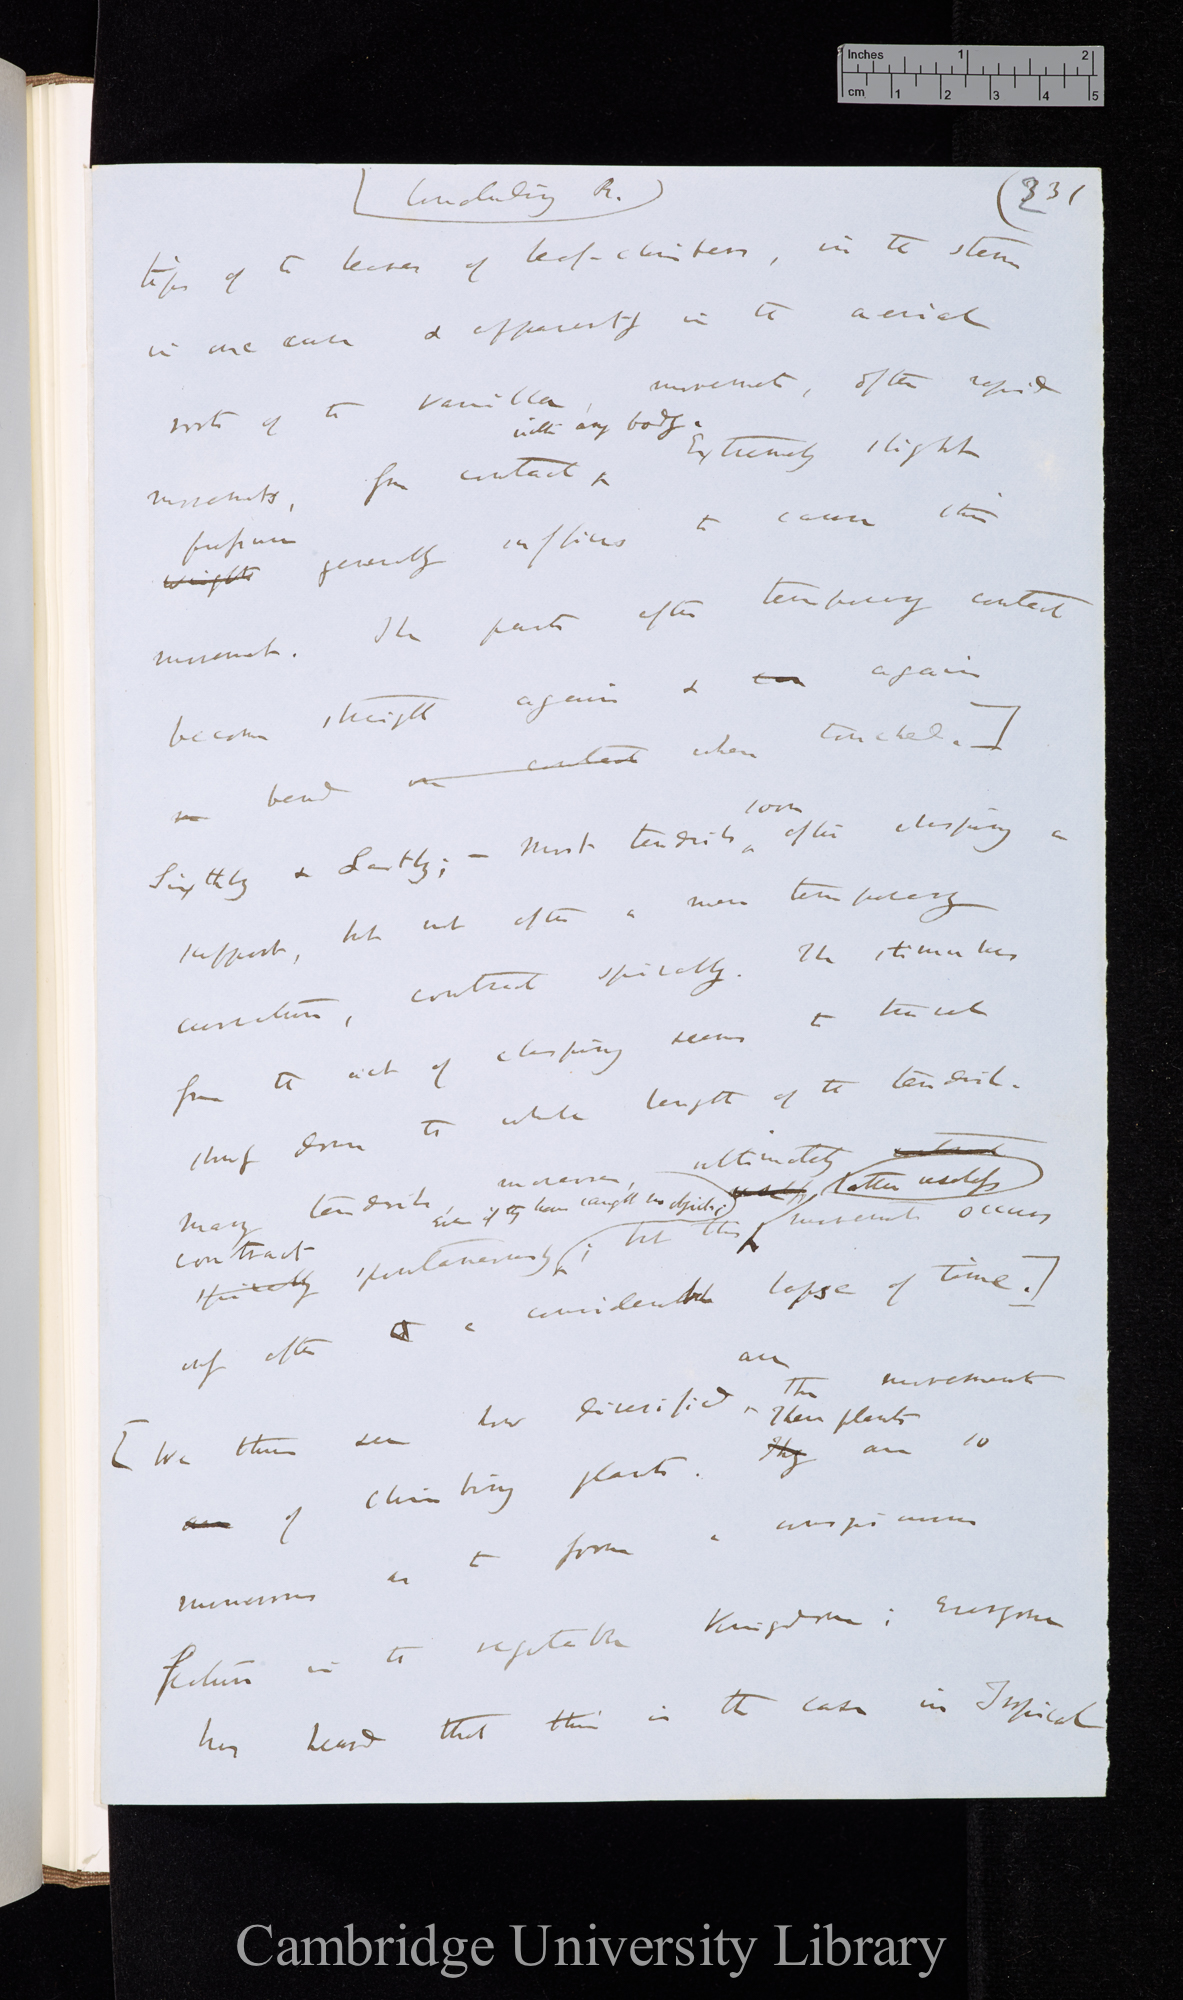 Inches 1 2
cm 1 2 3 4 5
Concluding R.
(231
tips of the leaves of leaf-climbers, in the stem
in one case & apparently in the aerial
roots of the Vanilla, movement, often rapid
with any body.
movements, from contact Extremely slight
pressure
weights generally suffices to cause this
movement. The parts after temporary contact
become straight again & can again
bend on contact when touched.]
soon
Sixthly & Lastly; — Most tendrils after clasping a
support, but not after a mere temporary
curvature, contract spirally. The stimulus
from the act of clasping seems to travel
slowly down the whole length of the tendril.
Many tendrils, moreover, ultimately contract
even if they have caught no object; useless latter useless
contract
spirally spontaneously; but this movement occurs
only after a considerable lapse of time.]
are
[We thus see how diversified the movements
These plants
are of climbing plants. They are so
numerous as to form a conspicuous
feature in the vegetable Kingdom; everyone
has heard that this is the case in Tropical
Cambridge University Library